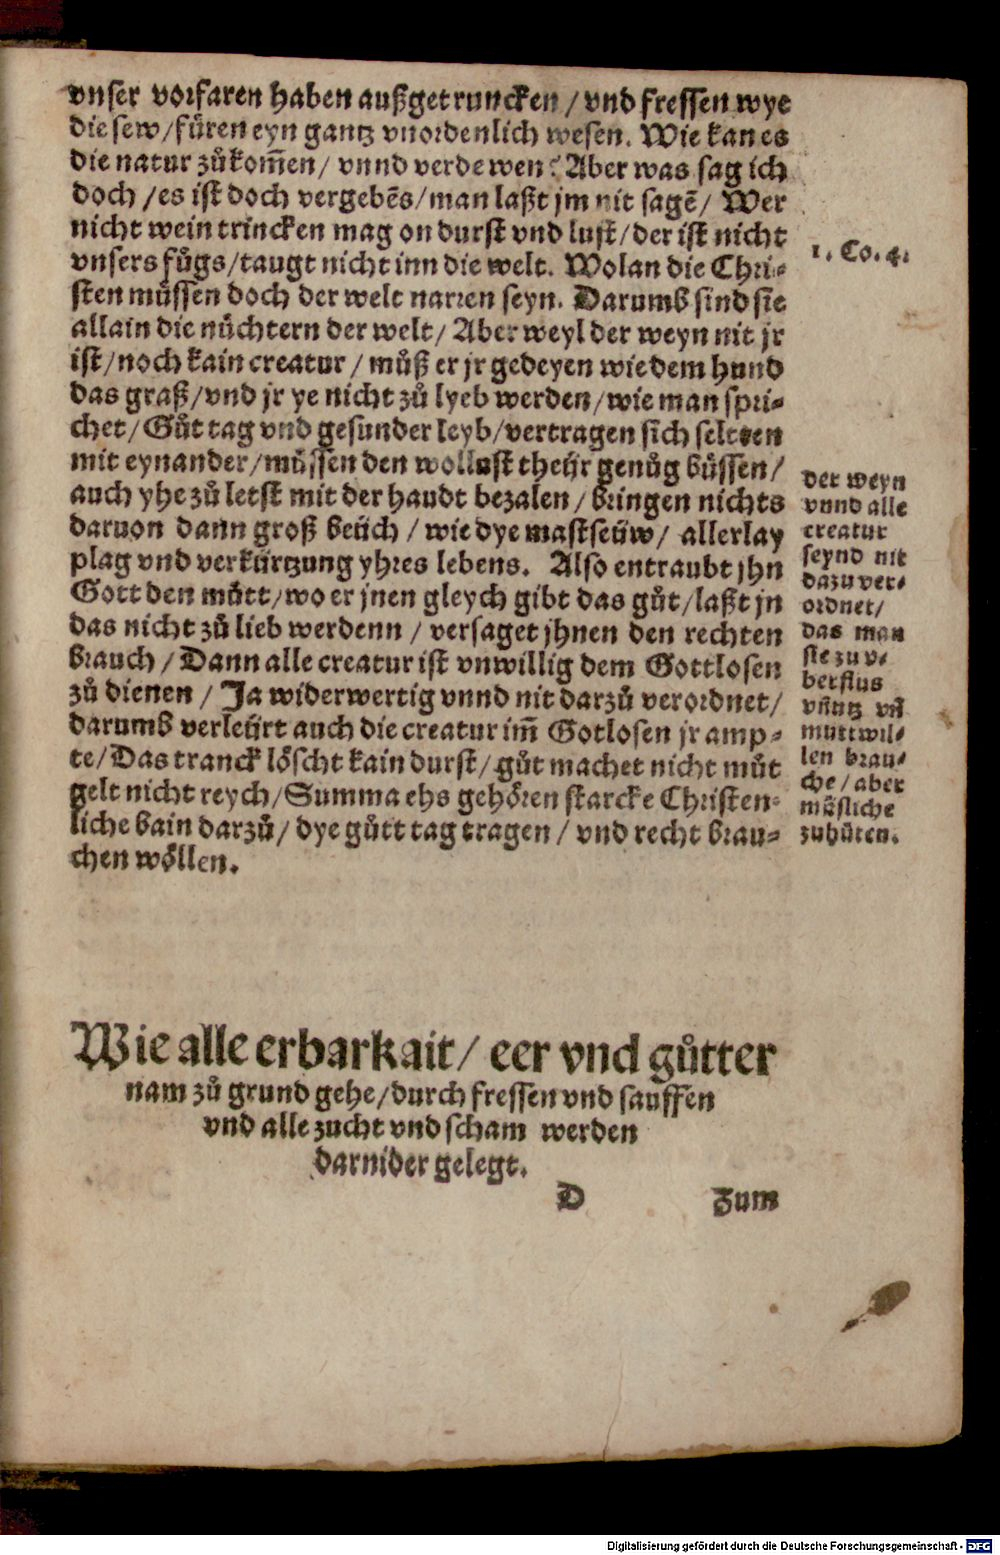 vnser vorfaren haben außgetruncken / vnd fressen wye
die sew / fůren eyn gantz vnordenlich wesen. Wie kan es
die natur zůkom̃en / vnnd verdewen? Aber was sag ich
doch / es ist doch vergebẽs / man laßt jm nit sagẽ / Wer
nicht wein trincken mag on durst vnd lust / der ist nicht
vnsers fůgs / taugt nicht inn die welt. Wolan die Chri⸗
sten můssen doch der welt narren seyn. Darumb sind sie
allain die nůchtern der welt / Aber weyl der weyn nit jr
ist / noch kain creatur / můß er jr gedeyen wie dem hund
das graß / vnd jr ye nicht zů lyeb werden / wie man spri⸗
chet / Gůt tag vnd gesunder leyb / vertragen sich selten
mit eynander / můssen den wollust theür genůg bůssen /
auch yhe zů letst mit der haudt bezalen / bringen nichts
daruon dann groß beüch / wie dye mastseüw / allerlay
plag vnd verkürtzung yhres lebens. Also entraubt jhn
Gott den můtt / wo er jnen gleych gibt das gůt / laßt jn
das nicht zů lieb werdenn / versaget jhnen den rechten
brauch / Dann alle creatur ist vnwillig dem Gottlosen
zů dienen / Ja widerwertig vnnd nit darzů verordnet /
darumb verleürt auch die creatur im̃ Gotlosen jr amp⸗
te / Das tranck löscht kain durst / gůt machet nicht můt
gelt nicht reych / Summa ehs gehören starcke Christen⸗
liche bain darzů / dye gůtt tag tragen / vnd recht brau⸗
chen wöllen.
1. Co. 4.
der weyn
vnnd alle
creatur
seynd nit
dazu ver⸗
ordnet /
das man
sie zu v⸗
berflus
vñutz vñ
muttwil⸗
len brau⸗
che / aber
mäsliche
zuhüten.
Wie alle erbarkait / eer vnd gůtter
nam zů grund gehe / durch fressen vnd sauffen
vnd alle zucht vnd scham werden
darnider gelegt.
D Zum
Digitalisierung gefördert durch die Deutsche Forschungsgemeinschaft - DFG